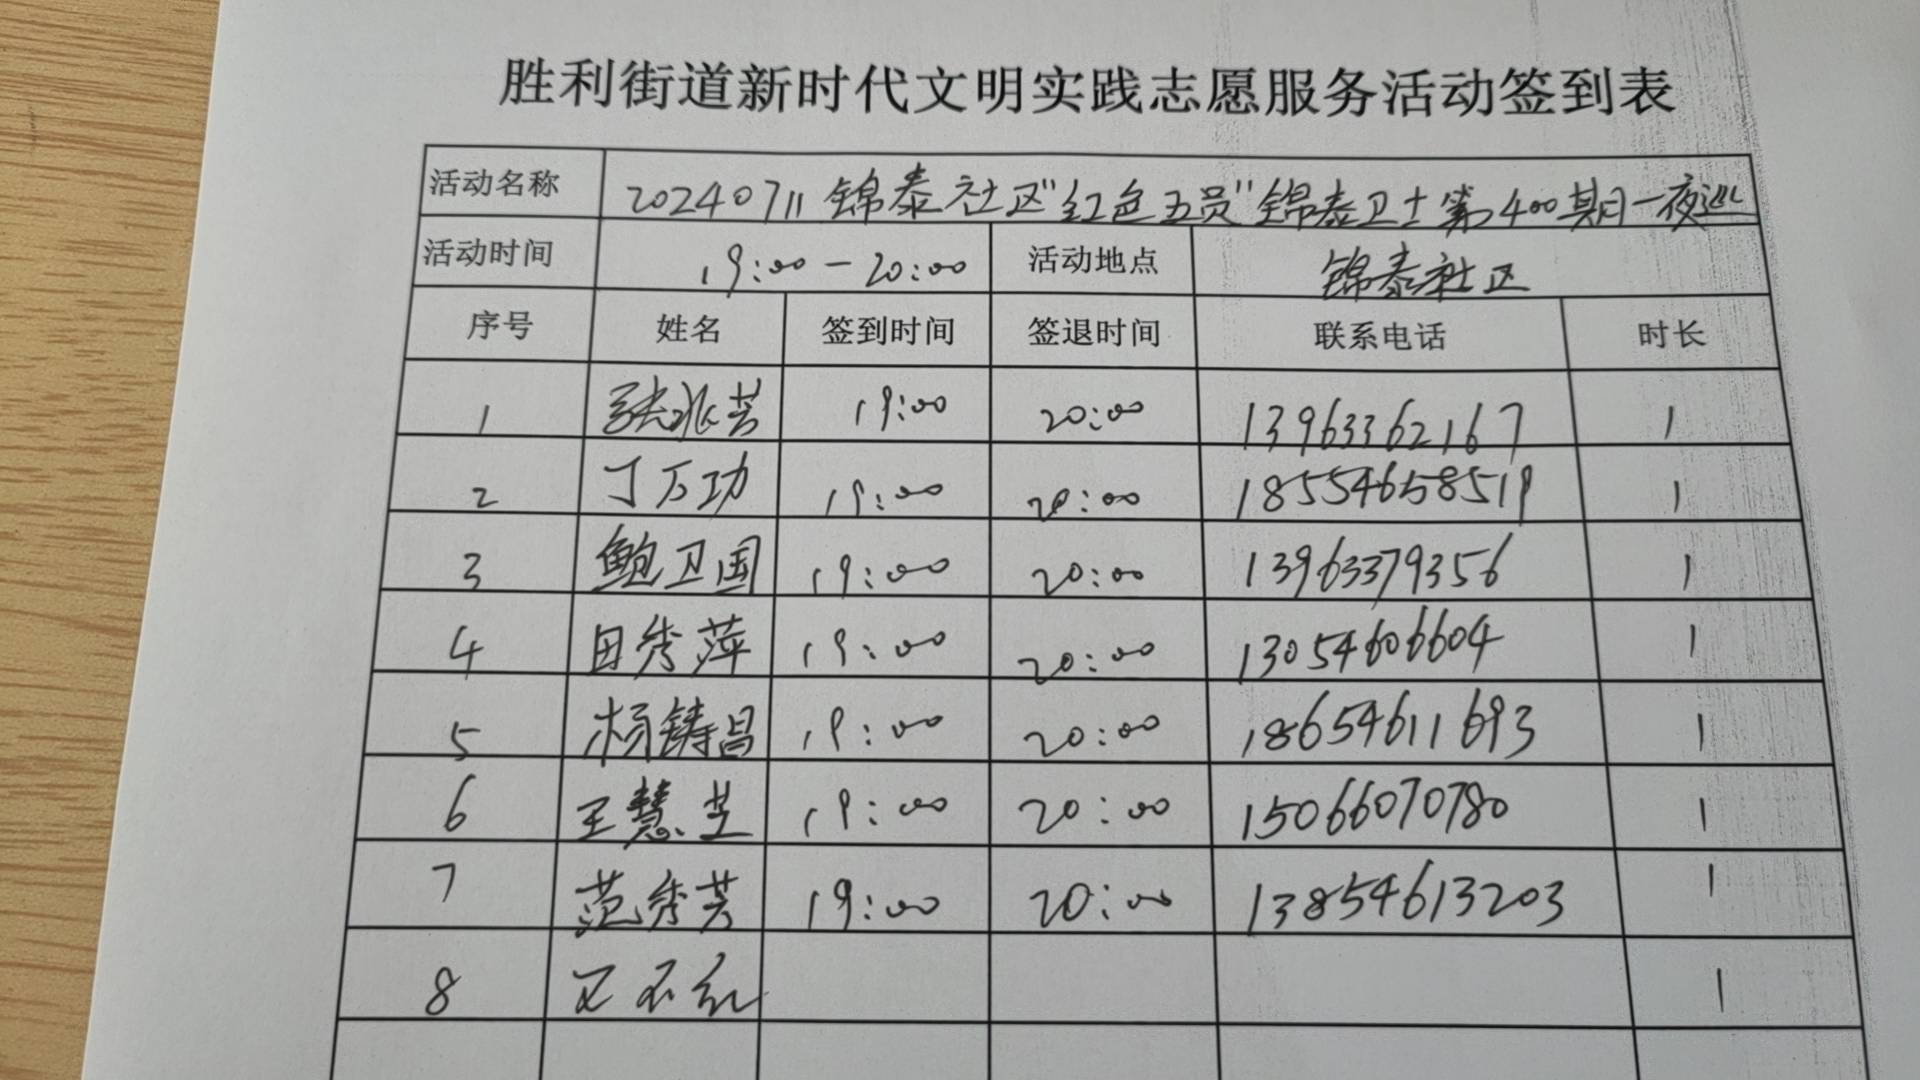 胜利街道新时代文明实践志愿服务活动签到表
活动名称 20240711 锦泰社区"红色五员"锦泰卫士第400期月一夜巡
活动时间 19:00-20:00 活动地点 锦泰社区
序号 姓名 签到时间 签退时间 联系电话 时长
1 张兆芸 19:00 20:00 13963362167 1
2 丁万功 19:00 20:00 18554658519 1
3 鲍卫国 19:00 20:00 13963379356 1
4 田秀萍 19:00 20:00 13054606604 1
5 杨铸昌 19:00 20:00 18654611693 1
6 王慧芝 19:00 20:00 15066070780 1
7 范秀芸 19:00 20:00 13854613203 1
8 1